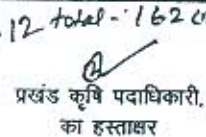 12 total - 162
प्रखंड कृषि पदाधिकारी,
का हस्ताक्षर